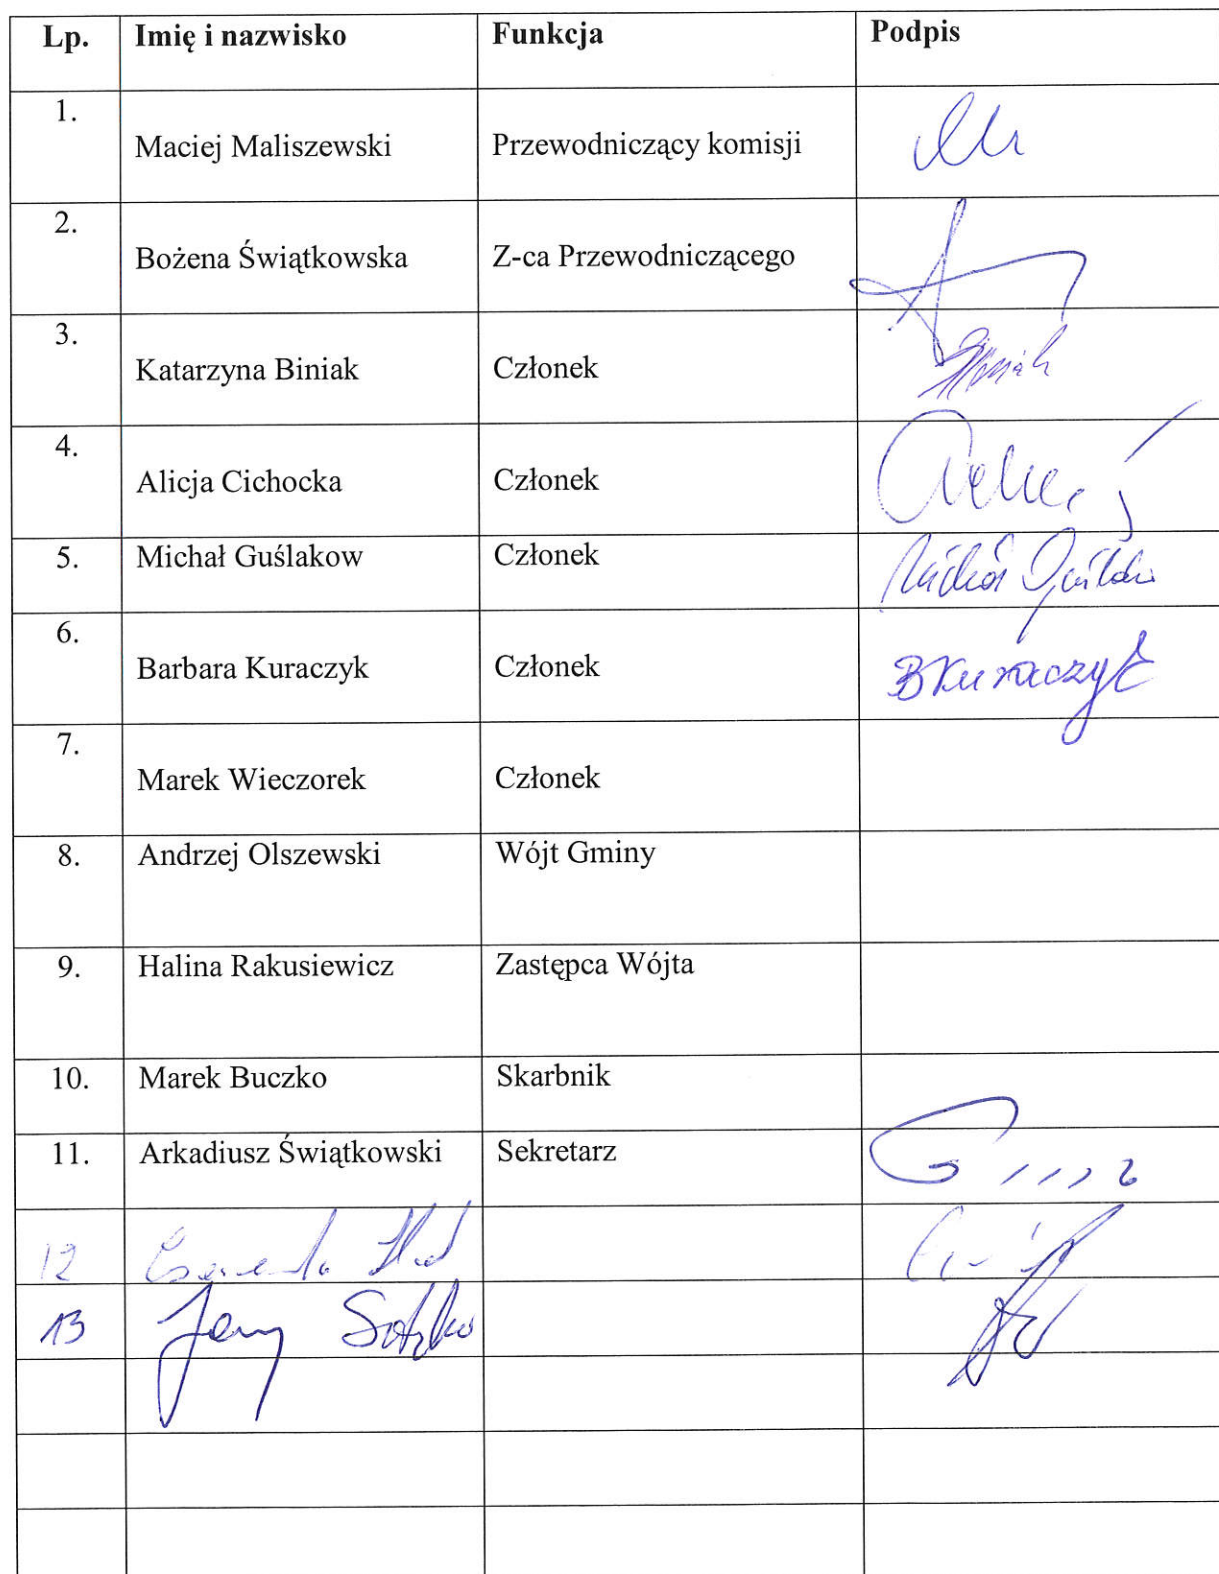 Lp. Imię i nazwisko Funkcja Podpis
1. Maciej Maliszewski Przewodniczący komisji
2. Bożena Świątkowska Z-ca Przewodniczącego
3. Katarzyna Biniak Członek
4. Alicja Cichocka Członek
5. Michał Guślakow Członek
6. Barbara Kuraczyk Członek BKuraczyk
7. Marek Wieczorek Członek
8. Andrzej Olszewski Wójt Gminy
9. Halina Rakusiewicz Zastępca Wójta
10. Marek Buczko Skarbnik
11. Arkadiusz Świątkowski Sekretarz
12
13